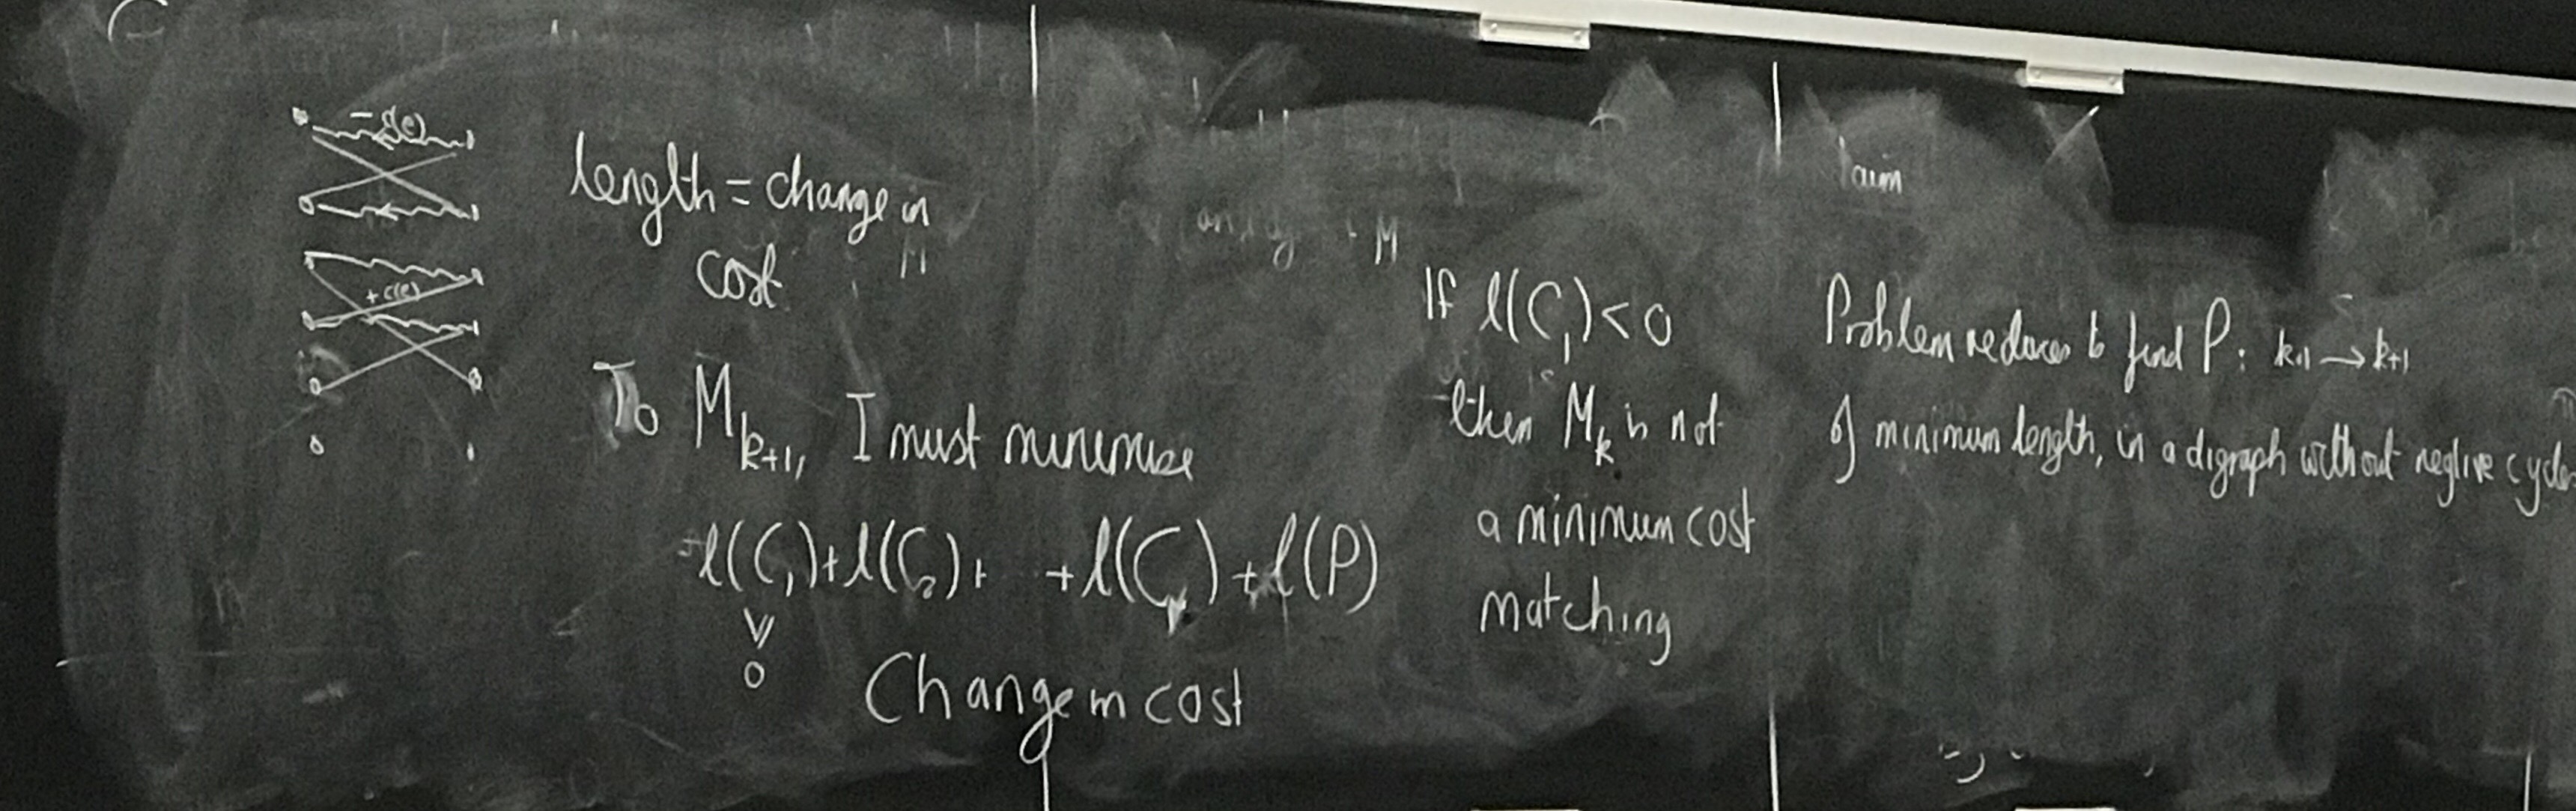 - c(e)
+ c(e)
length = change in
cost
To M_{k+1}, I must minimise
l(C_1) + l(C_2) + + l(C_r) + l(P)
V/
0
Change in cost
M
If l(C_1) < 0
then M_k is not
a minimum cost
matching
aim
Problem reduces to find P: k+1 → k+1
of minimum length, in a digraph without neglive cycles